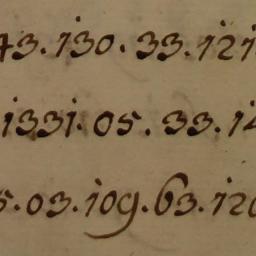 43. 130. 33. 121
1331. 05. 33. 14
5. 03. 109. 63. 120